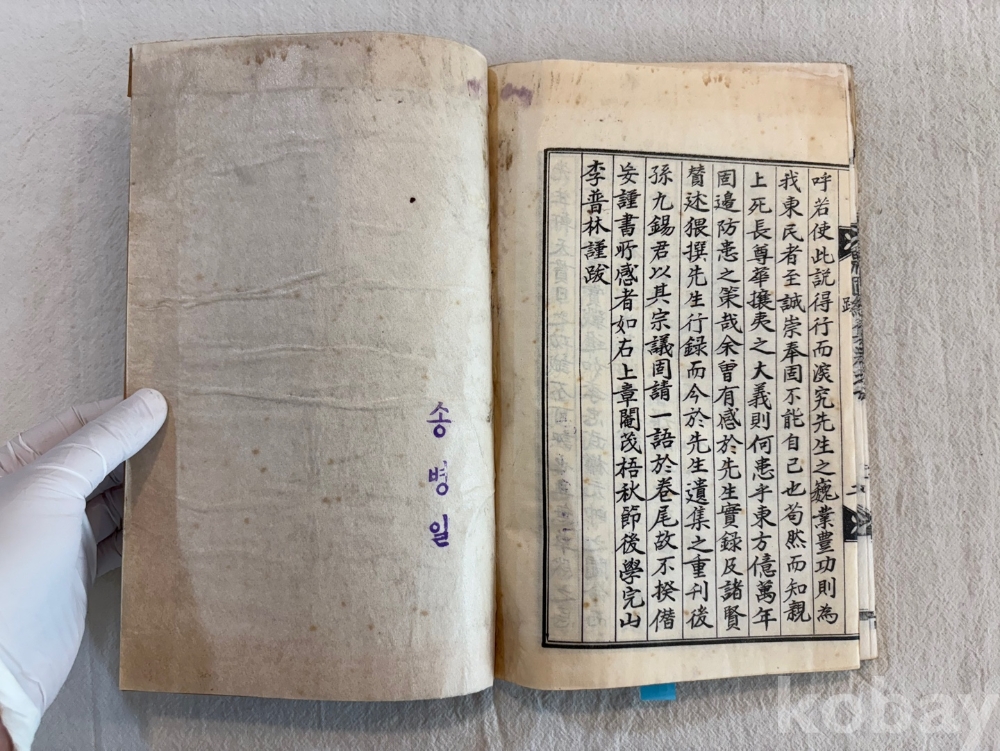 呼若使此說得行而深究先生之巍業豊功則為
我東民者至誠崇奉固不能自己也苟然而知親
上死長尊華攘夷之大義則何患乎東方億萬年
固邊防患之策哉余曾有感於先生實錄及諸賢
贊述猥撰先生行録而今於先生遺集之重刊後
孫九錫君以其宗議固請一語於卷尾故不揆僭
妄謹書所感者如右上章閹茂梧秋節後學完山
李普林謹跋
跋
송병일
kobay